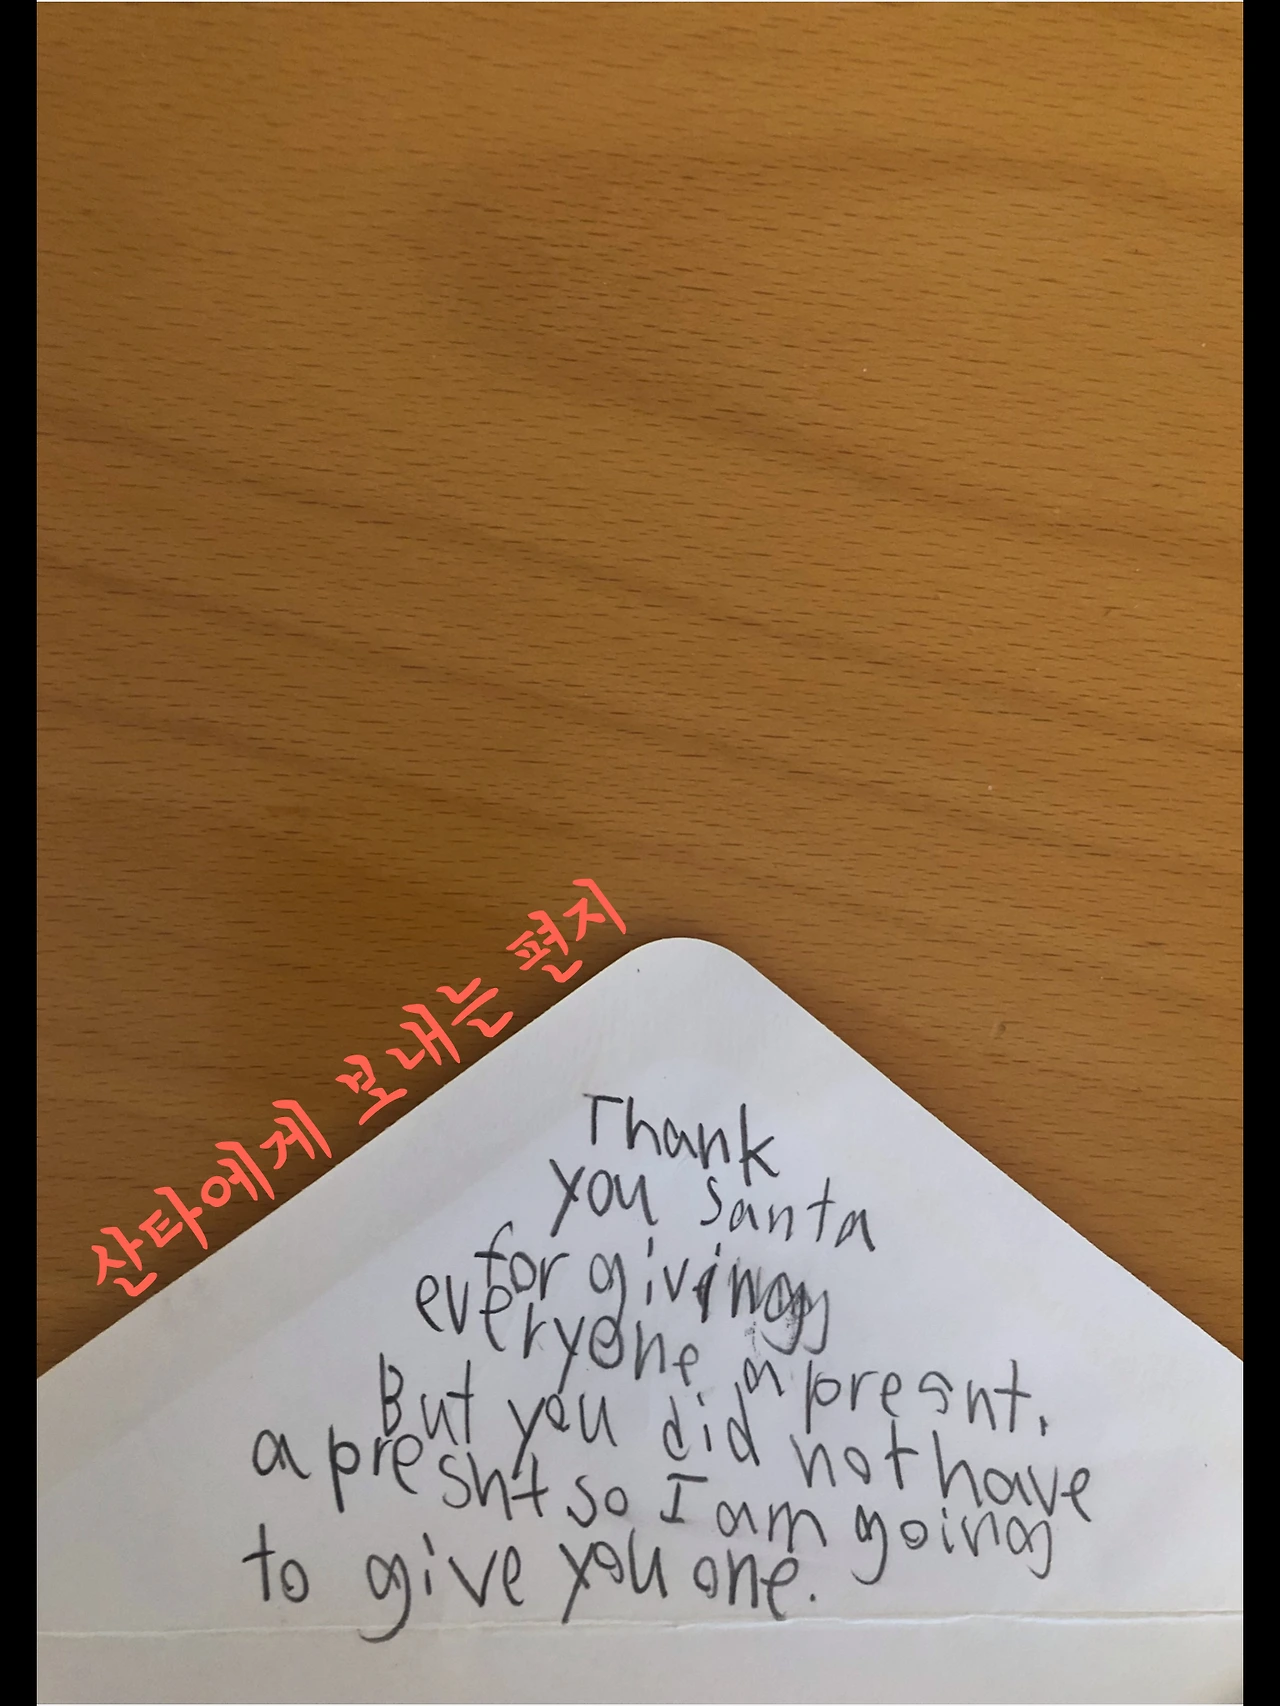 산타에게 보내는 편지
Thank
you santa
for giving
everyone a presnt.
But you did not have
a presnt so I am going
to give you one.